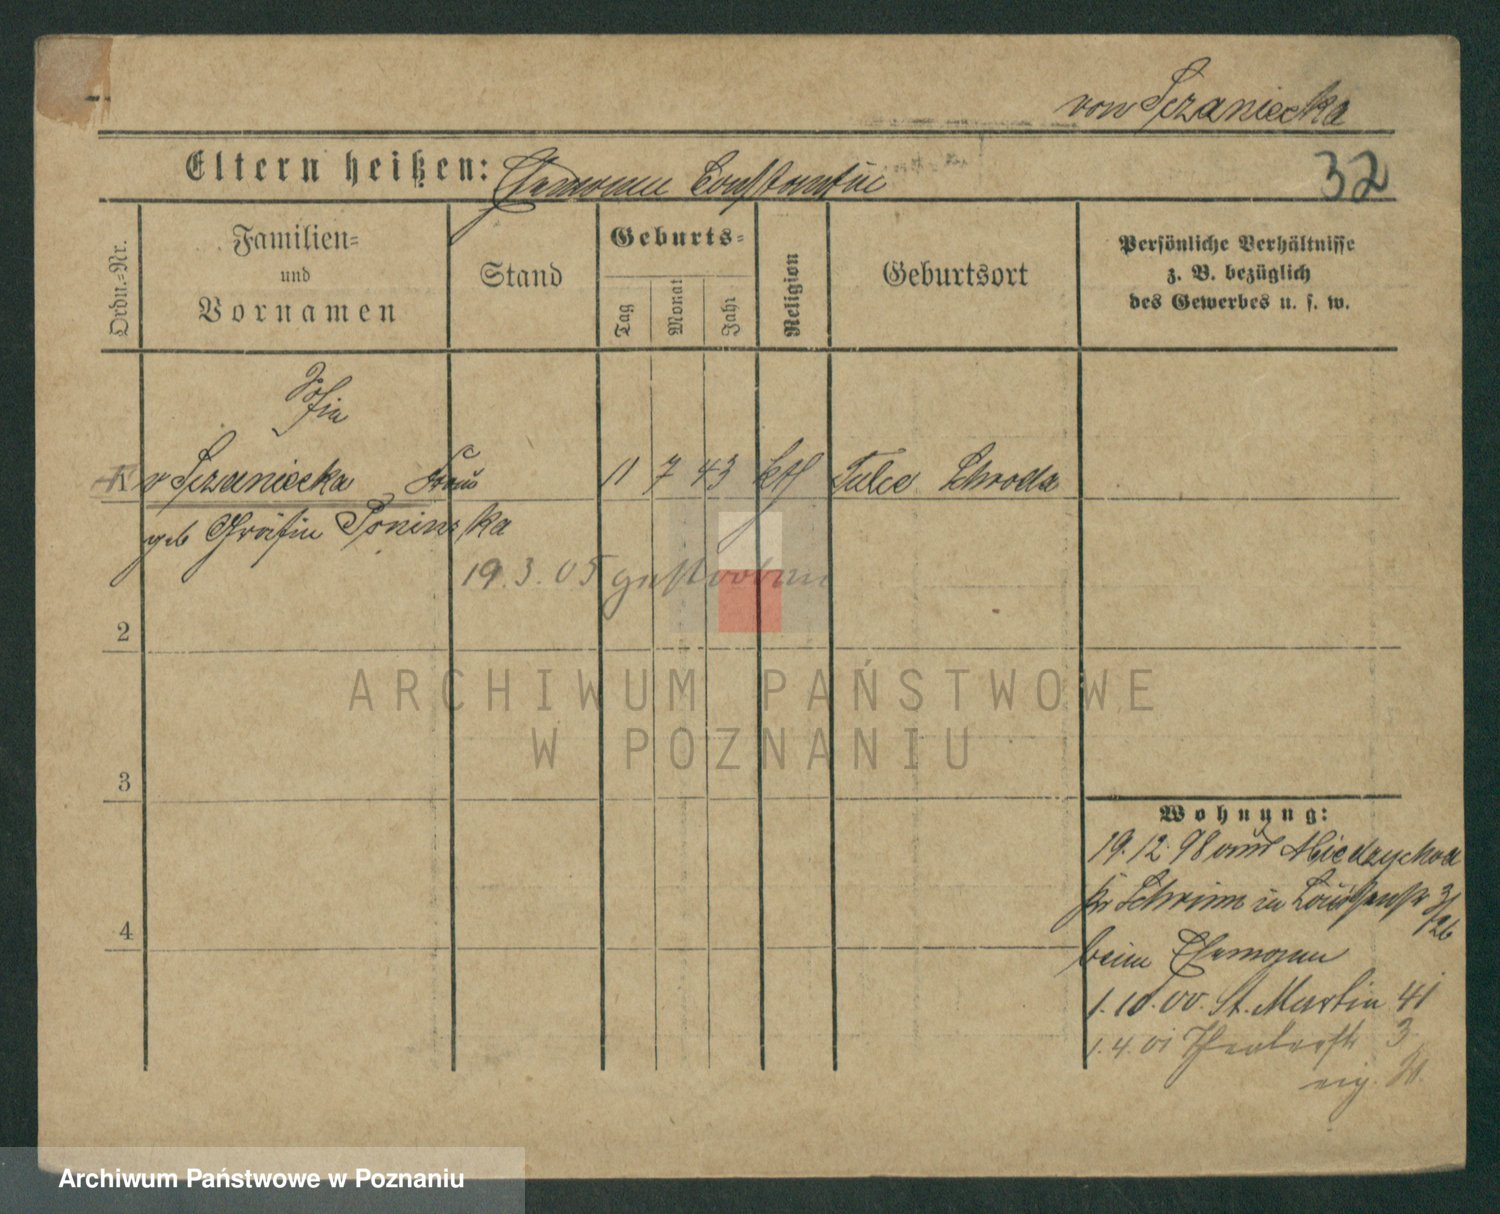 von Sczaniecka
Eltern heißen: Ehemann Constantin
32
Ordn.-Nr.
Familien-
und
Vornamen
Stand
Geburts-
Tag
Monat
Jahr
Religion
Geburtsort
Persönliche Verhältnisse
z. B. bezüglich
des Gewerbes u. s. w.
Sofia
v Sczaniecka Frau 11 7 43 kth Tulce Schroda
geb Gräfin Poninska
19.3.05 gestorben
2
3
4
Wohnung:
19.12.98 aus Miedzychod
Kr Schrimm in Louisenstr 3
/26
beim Ehemann
1.10.00. St. Martin 41
1.4.01 Theaterstr 3
ARCHIWUM PAŃSTWOWE
W POZNANIU
Archiwum Państwowe w Poznaniu